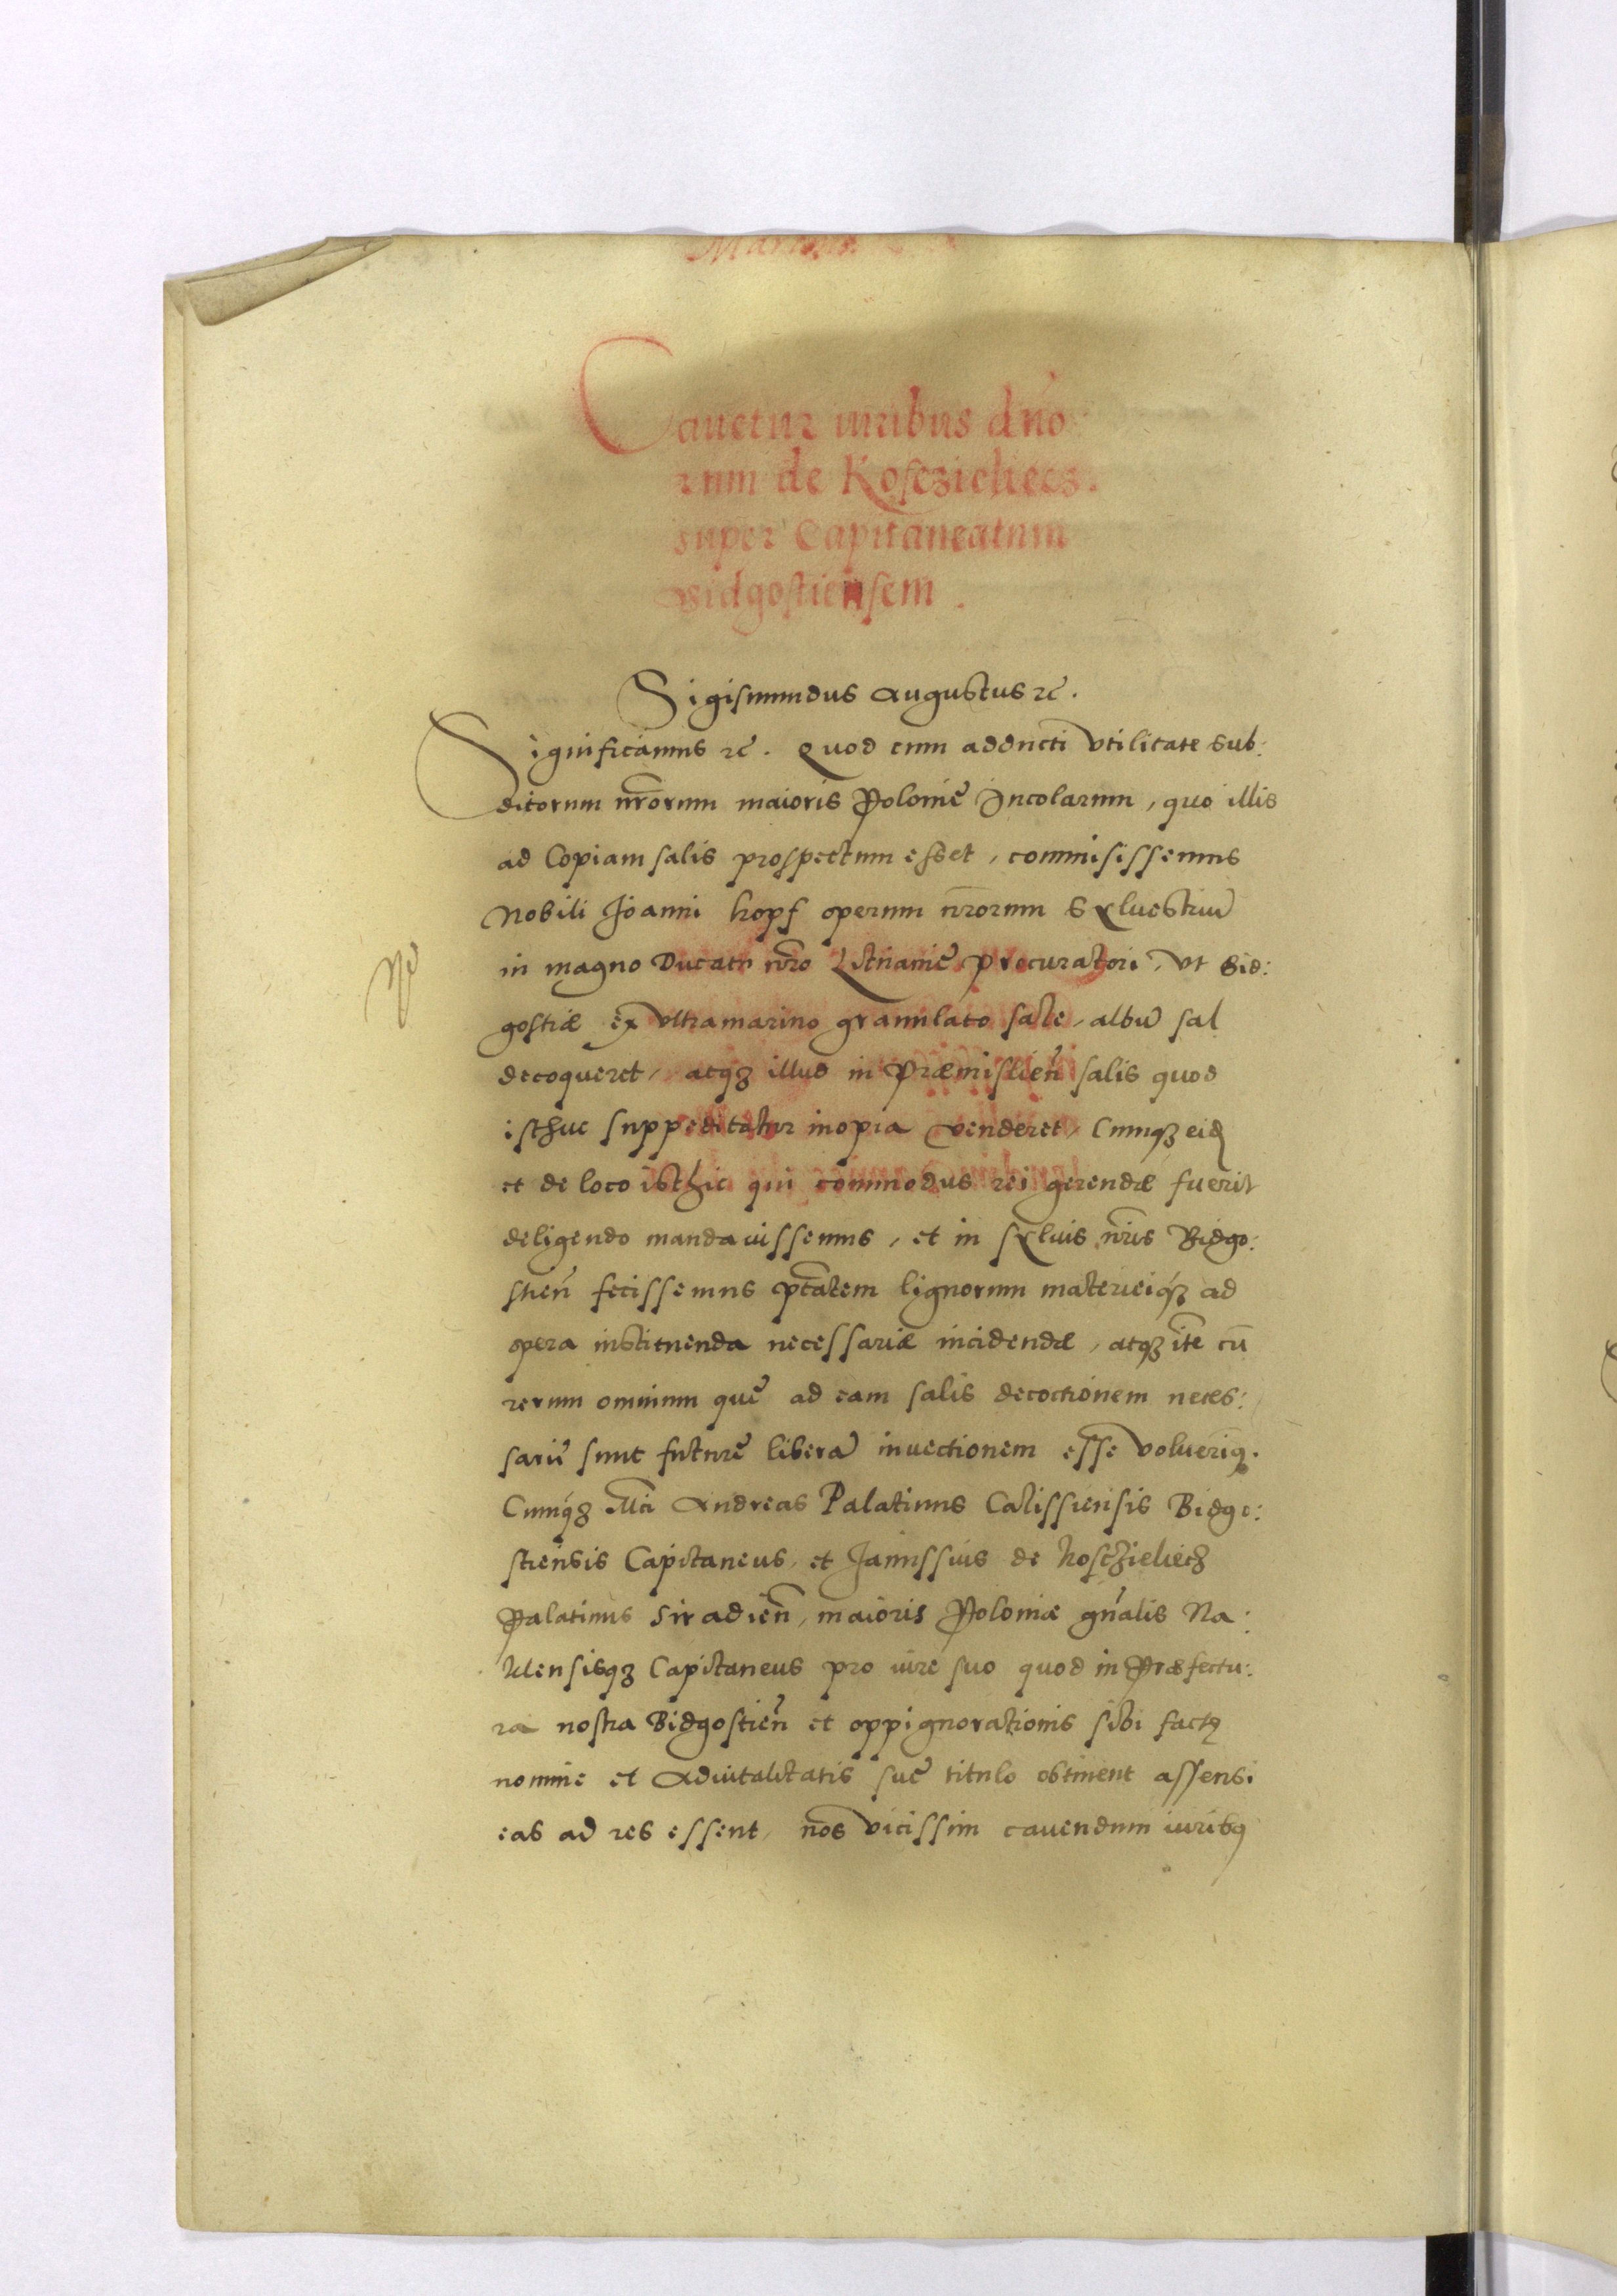 Cavetur iuribus dno
rum de Kosczieliecz.
super Capitaneatum
Bidgostiensem.
Sigismundus Augustus rc.
Significamus rc. Quod cum adducti vtilitate sub:
ditorum nrorum maioris Polonię Incolarum, quo illis
ad Copiam salis prospectum esset, commisissemus
Nobili Joanni hopf operum nrorum Sylvestriū
in magno Ducatu nro Lituanię procuratori, vt Bid:
gostiæ ex vltramarino granulato sale, albū sal
decoqueret, atqz illud in Præmislien̄ salis quod
isthuc suppeditatur inopia venderet, Cumqz eid
et de loco isthic qui commodus rei gerendæ fuerit
deligendo mandavissemus, et in sylvis nris Bidgo:
stien̄ fecissemus ptatem lignorum materieiqz ad
opera instituenda necessariæ incidendæ, atqz ite cū
rerum omnium quę ad eam salis decoctionem neces:
sarię sunt futurę liberā invectionem esse voluerimq.
Cumqz Mci Andreas Palatinus Calissiensis Bidgo:
stiensis Capitaneus, et Janussius de Kosczieliecz
Palatinus Siradien̄, maioris Poloniæ gn̄alis Na:
klensisqz Capitaneus pro iure suo quod in Præfectu:
ra nostra Bidgostien̄ et oppignorationis sibi factę
nomine et Advitalitatis suę titulo obtinent assensi
eas ad res essent, nos vicissim cavendum iuribq